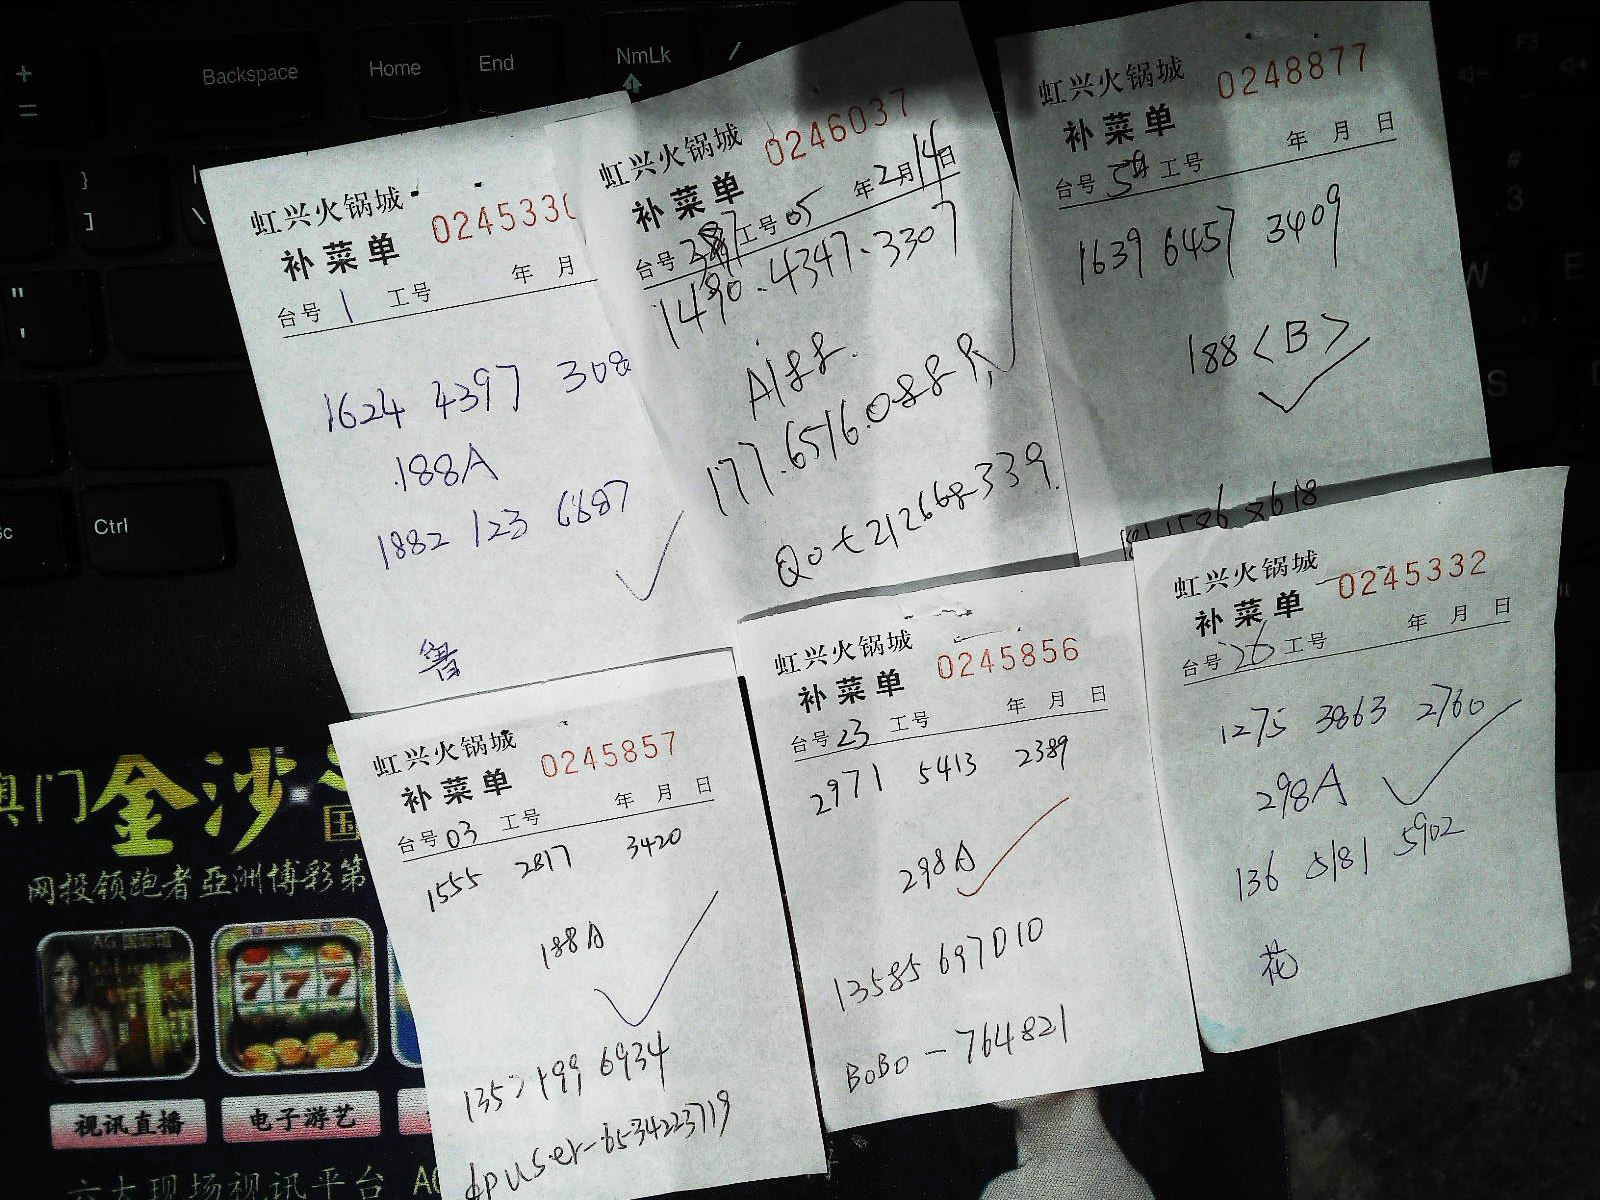 Backspace
Home
End
NmLk
/
+
=
}
]
|
\
"
'
Ctrl
F3
#
3
W
E
S
虹兴火锅城
补菜单
024533
台号 1 工号 年 月
1624 4397 308
188A
1882 123 6687
虹兴火锅城
补菜单
0246037
台号 工号 05 年 2月 14日
1490.4347.3307
A188.
177.6516.0889
212668339
虹兴火锅城
补菜单
0248877
台号 工号 年 月 日
1639 6457 3409
188<B>
1586 8618
虹兴火锅城
补菜单
0245857
台号 03 工号 年 月 日
1555 2817 3420
188A
6934
user-6534223719
虹兴火锅城
补菜单
0245856
台号 23 工号 年 月 日
2971 5413 2389
298A
13585 697010
BOBO-764821
虹兴火锅城
补菜单
0245332
台号 26 工号 年 月 日
1275 3863 2760
298A
136 5181 5902
花
澳门金沙
国
网投领跑者亞洲博彩第
AG 国际馆
777
视讯直播
电子游艺
六大现场视讯平台